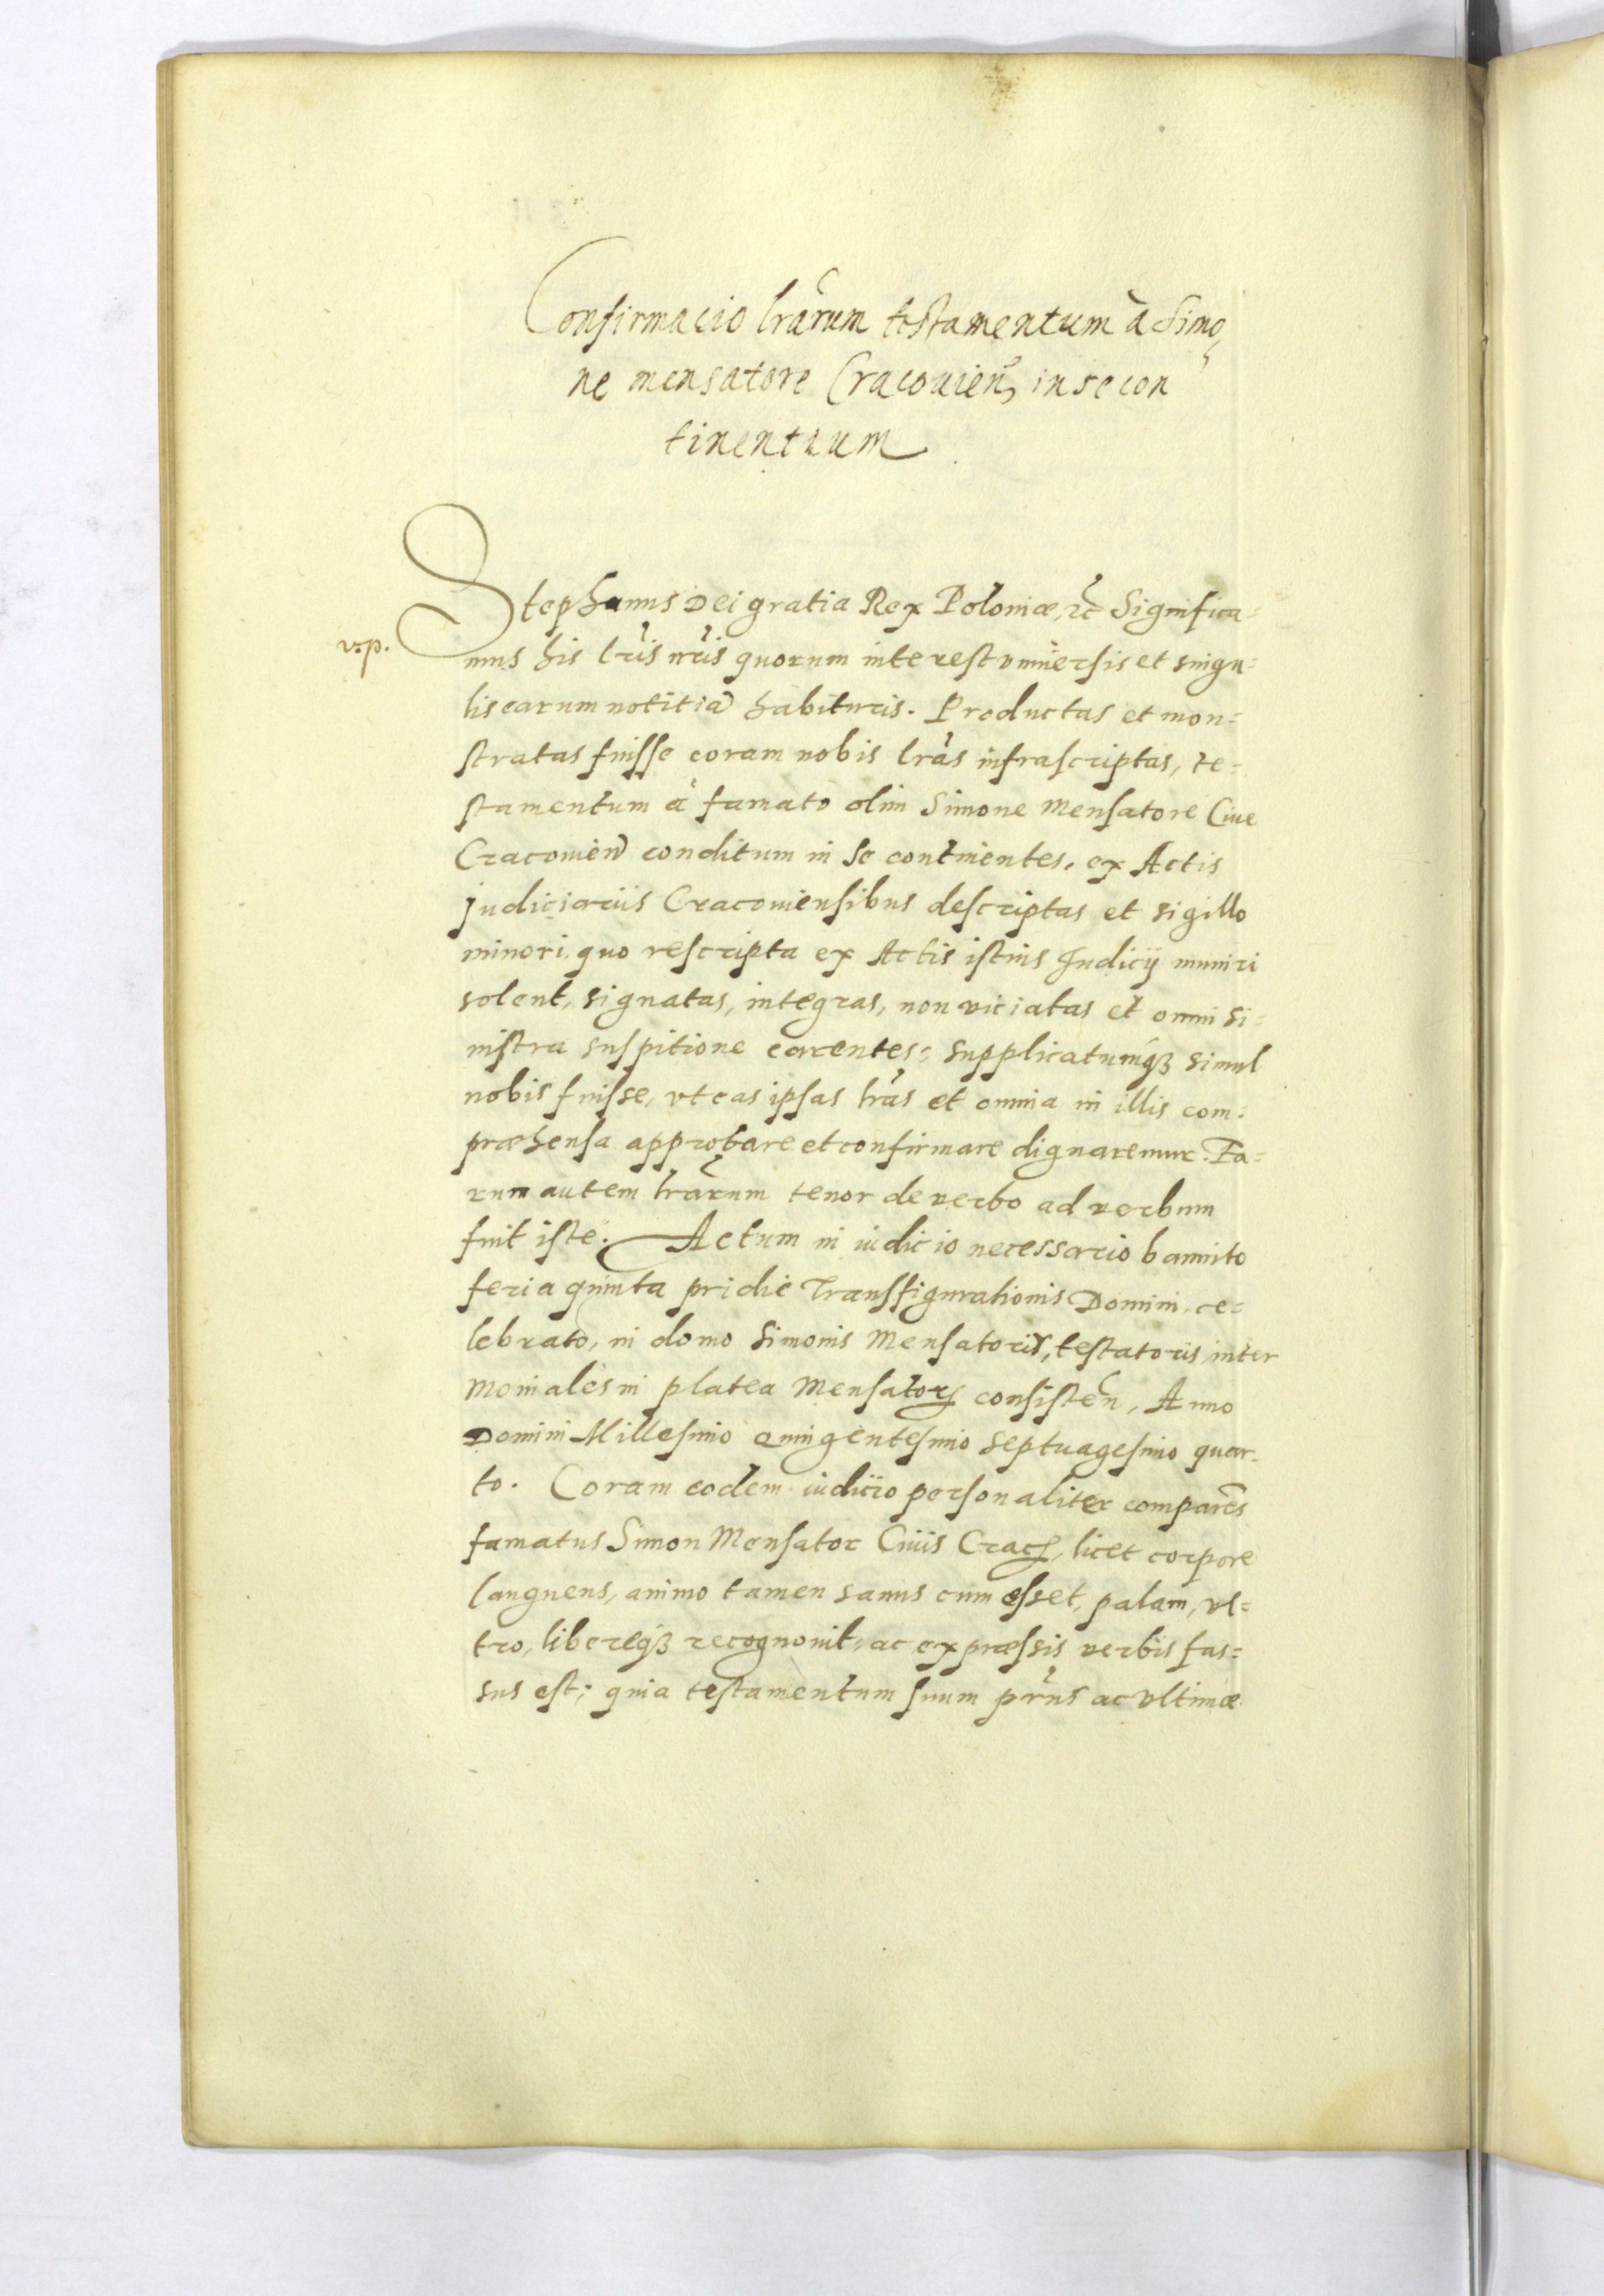 Confirmacio lrãrum testamentum à Simo
ne mensatore Cracouieñ in se con
tinentium
Stephanus Dei gratia Rex Poloniæ, &c̃ Significa=
v.p.
mus his lr̃is nr̃is quorum interest vniuersis et singu=
lis earum notitiã habituris. Productas et mon=
stratas fuisse coram nobis lrãs infrascriptas, te=
stamentum à famato olim Simone Mensatore Ciue
Cracouieñ conditum in se continentes, ex Actis
Judiciariis Cracouiensibus descriptas et sigillo
minori, quo rescripta ex Actis istius Judicij muniri
solent, signatas, integras, non viciatas et omni si=
nistra suspitione carentes; supplicatumq́ꝫ simul
nobis fuisse, vt eas ipsas lrãs et omnia in illis com=
præhensa approbare et confirmare dignaremur. Ea=
rum autem lrãrum tenor de verbo ad verbum
fuit iste. Actum in iudicio necessario bannito
feria quinta pridie Transfigurationis Domini, ce=
lebrato, in domo Simonis Mensatoris, testatoris, inter
Moniales in platea Mensatorꝝ consisteñ, Anno
Domini Millesimo Quingentesimo Septuagesimo quar=
to. Coram eodem iudicio personaliter comparẽs
famatus Simon Mensator Ciuis Cracꝭ, licet corpore
languens, animo tamen sanus cum esset, palam, vl=
tro, libereq́ꝫ recognouit, ac expræssis verbis fas=
sus est; quia testamentum suum pr̃ns ac vltimæ